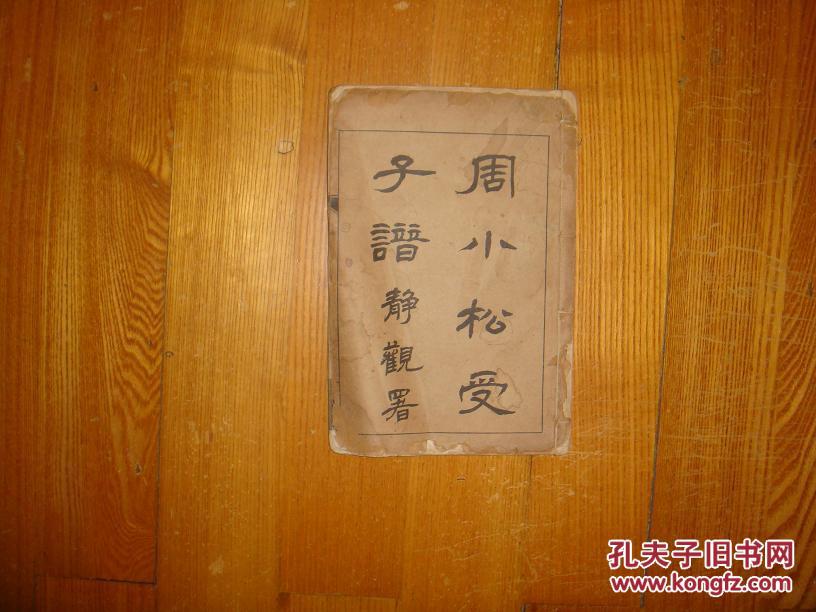 周小松受
子譜靜觀署
孔夫子旧书网
www.kongfz.com